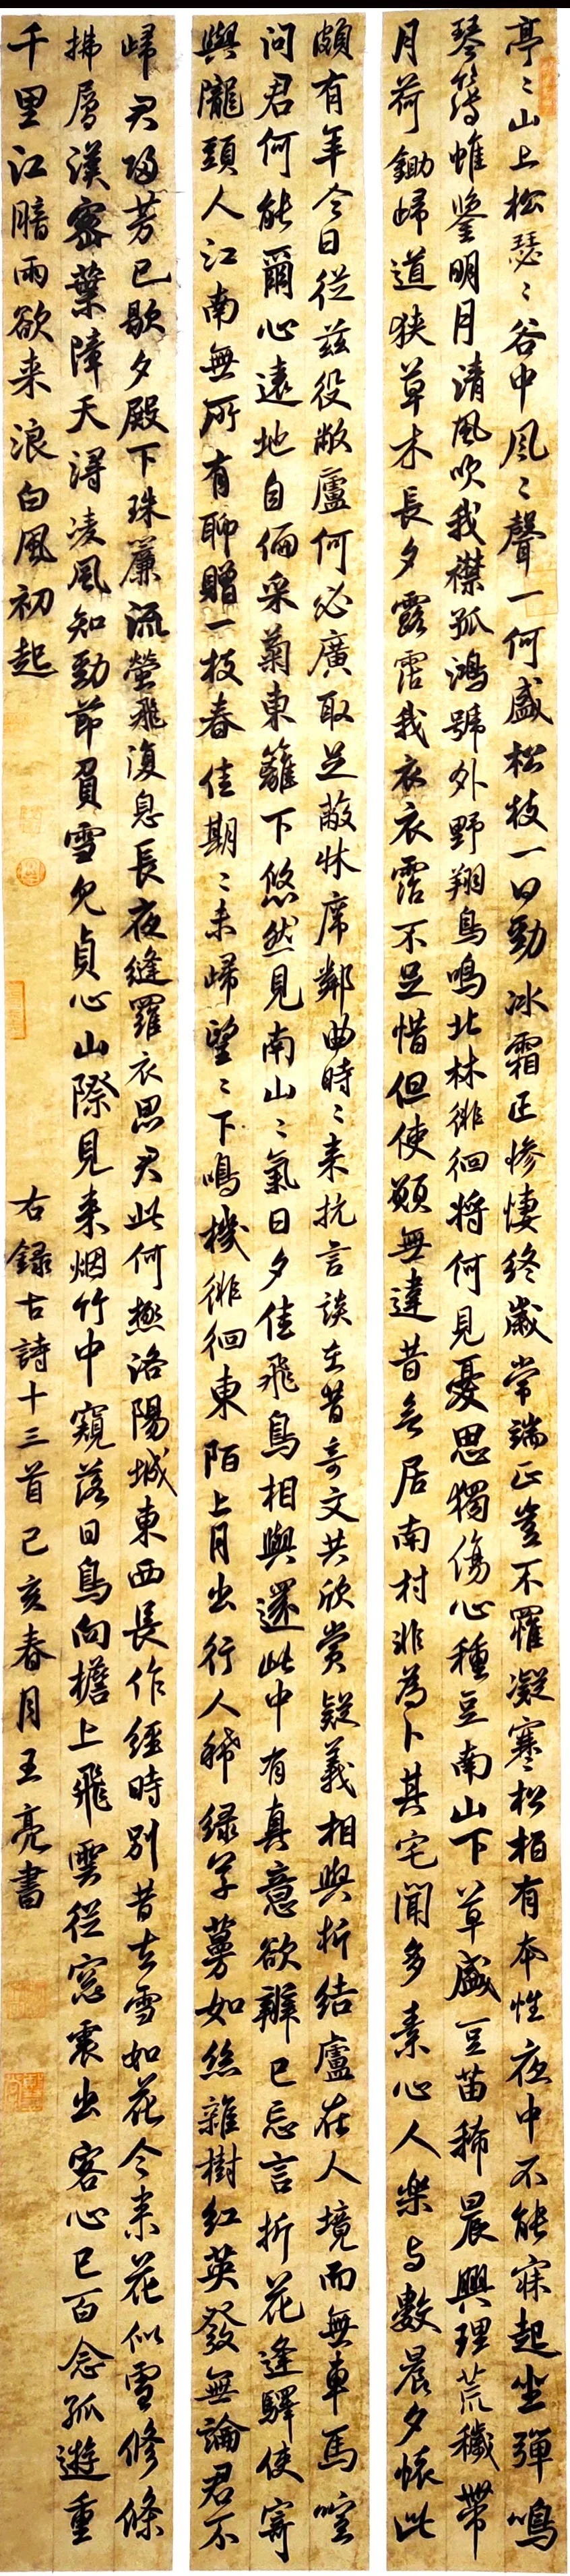 亭〻山上松瑟〻谷中風〻聲一何盛松枝一曰勁冰霜正慘悽終歲常端正豈不羅凝寒松柏有本性夜中不能寐起坐彈鳴
琴簿帷鑒明月清風吹我襟孤鴻號外野翔鳥鳴北林徘徊將何見憂思獨傷心種豆南山下草盛豆苗稀晨興理荒穢帶
月荷鋤歸道狹草木長夕露霑我衣衣霑不足惜但使願無違昔欲居南村非為卜其宅聞多素心人樂与數晨夕懷此
頗有年今日從茲役敝廬何必廣取足蔽牀席鄰曲時〻来抗言談在昔奇文共欣賞疑義相與析結廬在人境而無車馬喧
問君何能爾心遠地自偏采菊東籬下悠然見南山〻氣日夕佳飛鳥相與還此中有真意欲辨已忘言折花逢驛使寄
與隴頭人江南無所有聊贈一枝春佳期〻未歸望〻下鳴機徘徊東陌上月出行人稀綠草蔓如絲雜樹紅英發無論君不
歸君歸芳已歇夕殿下珠簾流螢飛復息長夜縫羅衣思君此何極洛陽城東西長作經時別昔去雪如花今来花似雪修條
拂層漢密葉障天潯凌風知勁節負雪見貞心山際見来烟竹中窺落日鳥向檐上飛雲從窗裏出客心已百念孤遊重
千里江暗雨欲来浪白風初起
右錄古詩十三首己亥春月王亮書